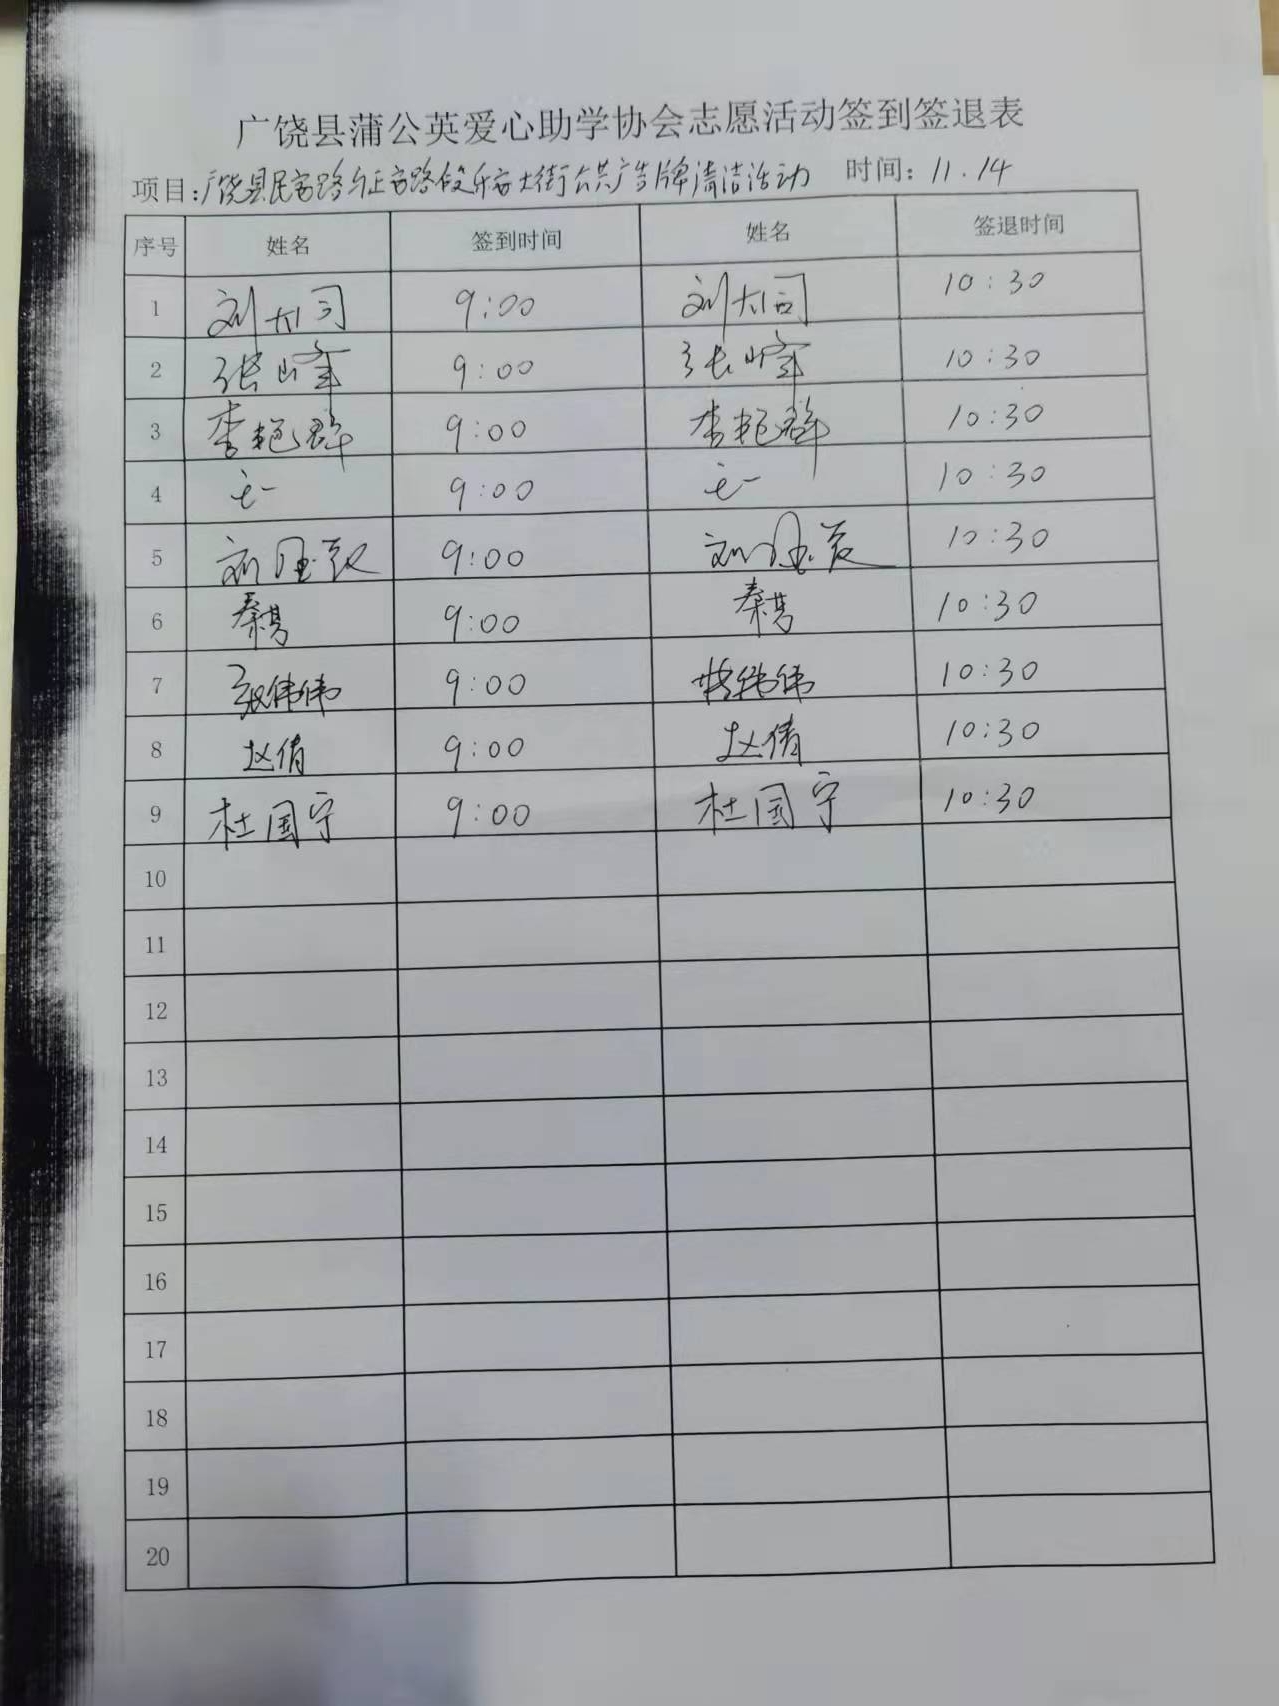 广饶县蒲公英爱心助学协会志愿活动签到签退表
项目:广饶县民安路与正安路段乐安大街公共广告牌清洁活动 时间: 11.14
序号 姓名 签到时间 姓名 签退时间
1 刘大司 9:00 刘大司 10:30
2 张峰 9:00 张峰 10:30
3 李艳群 9:00 李艳群 10:30
4 9:00 10:30
5 刘 9:00 刘 10:30
6 秦 9:00 秦 10:30
7 张伟伟 9:00 伟伟 10:30
8 赵倩 9:00 赵倩 10:30
9 杜国宁 9:00 杜国宁 10:30
10
11
12
13
14
15
16
17
18
19
20